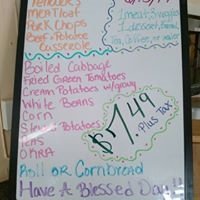 Tenders
Meatloaf
Pork Chops
Beef & Potato
Casserole
1 meat, 3 veggies
1 dessert, Bread,
Tea, Coffee, or water
Boiled Cabbage
Fried Green Tomatoes
Cream Potatoes w/gravy
White Beans
Corn
Stewed Potatoes
Peas
OKRA
$7.49
Plus Tax
Roll or Cornbread
Have A Blessed Day!!